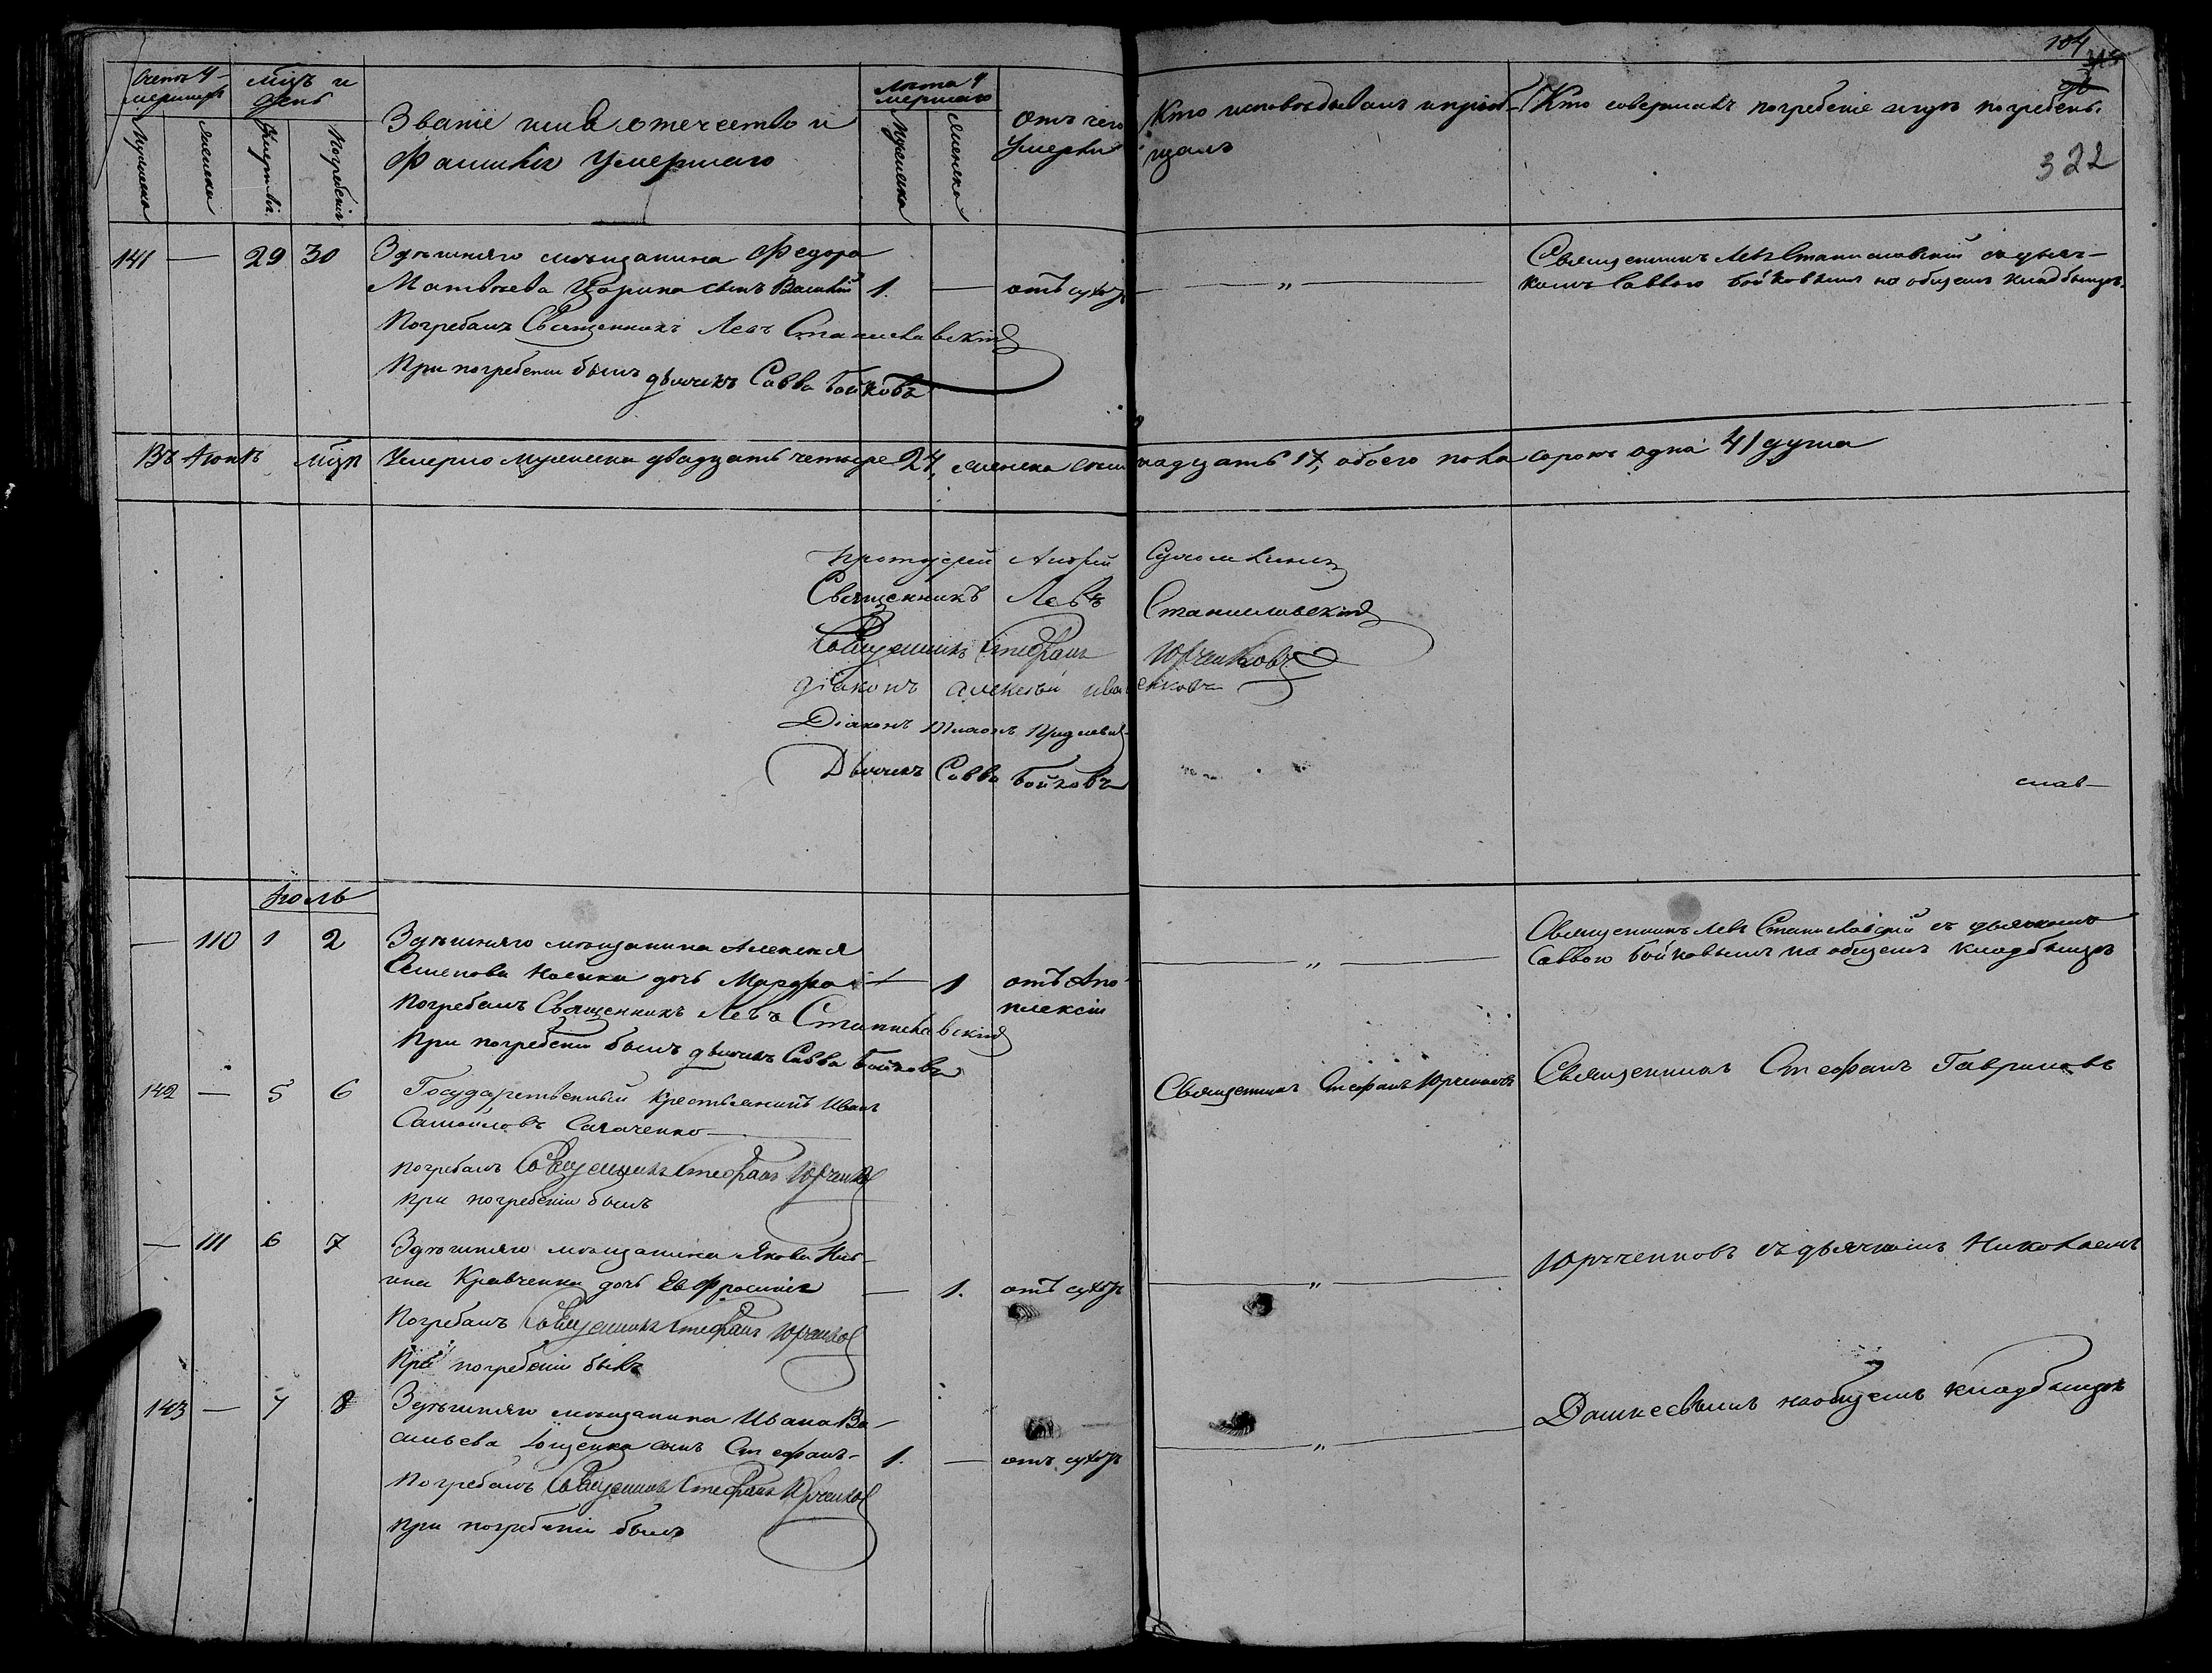 104
322
Счетъ у-
мершихъ
мцъ и
день
Званіе имя отечество и
Фамилія Умершаго
Лѣта у
мершаго
Отъ чего
Умерли
Кто исповѣдывалъ и пріоб-
щалъ
Кто совершалъ погребеніе и гдѣ погребены.
Мужеска
Женска
Смерти
Погребенія
Мужеска
Женска
141 — 29 30 Здѣшняго мѣщанина Федора
Матвѣева Царика сынъ Василій 1. — отъ сухот — „ —
Священникъ Левъ Станиславскій съ дьяч-
комъ Саввою Бойковымъ на общемъ кладбищѣ.
Погребалъ Священникъ Левъ Станиславскій
При погребеніи былъ дьячекъ Савва Бойковъ
Въ Іюнѣ мцѣ Умерло мужеска двадцать четыре 24, женска семнадцать 17, обоего пола сорокъ одна 41 душа
Протоіерей Андрей
Священникъ Левъ Станиславскій
Священникъ Стефанъ Юрченковъ
Діаконъ Алексѣй
Діаконъ
Дьячекъ Савва Бойковъ
Іюль
— 110 1 2 Здѣшняго мѣщанина Алексѣя
Семенова Носика дочь Марфа — 1 отъ Апо-
плексіи — „ —
Священникъ Левъ Станиславскій съ дьячкомъ
Саввою Бойковымъ на общемъ кладбищѣ
Погребалъ Священникъ Левъ Станиславскій
При погребеніи былъ дьячекъ Савва Бойковъ
142 — 5 6 Государственный крестьянинъ Иванъ
Самойловъ
Священникъ Стефанъ Юрченковъ
Священникъ Стефанъ Гавриловъ
погребалъ Священникъ Стефанъ Юрченковъ
при погребеніи былъ
— 111 6 7 Здѣшняго мѣщанина Якова
Кравченка дочь Евфросинія — 1. отъ сухот — „ —
Юрченковъ съ дьячкомъ Николаемъ
Погребалъ Священникъ Стефанъ Юрченковъ
При погребеніи былъ
143 — 7 8 Здѣшняго мѣщанина Ивана Ва-
сильева сынъ Стефанъ 1. — отъ сухот — „ —
Дашкеевымъ на общемъ кладбищѣ
Погребалъ Священникъ Стефанъ Юрченковъ
при погребеніи былъ